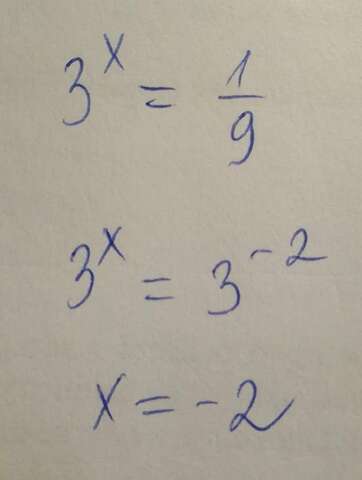 3^x = 1/9
3^x = 3^-2
x = -2